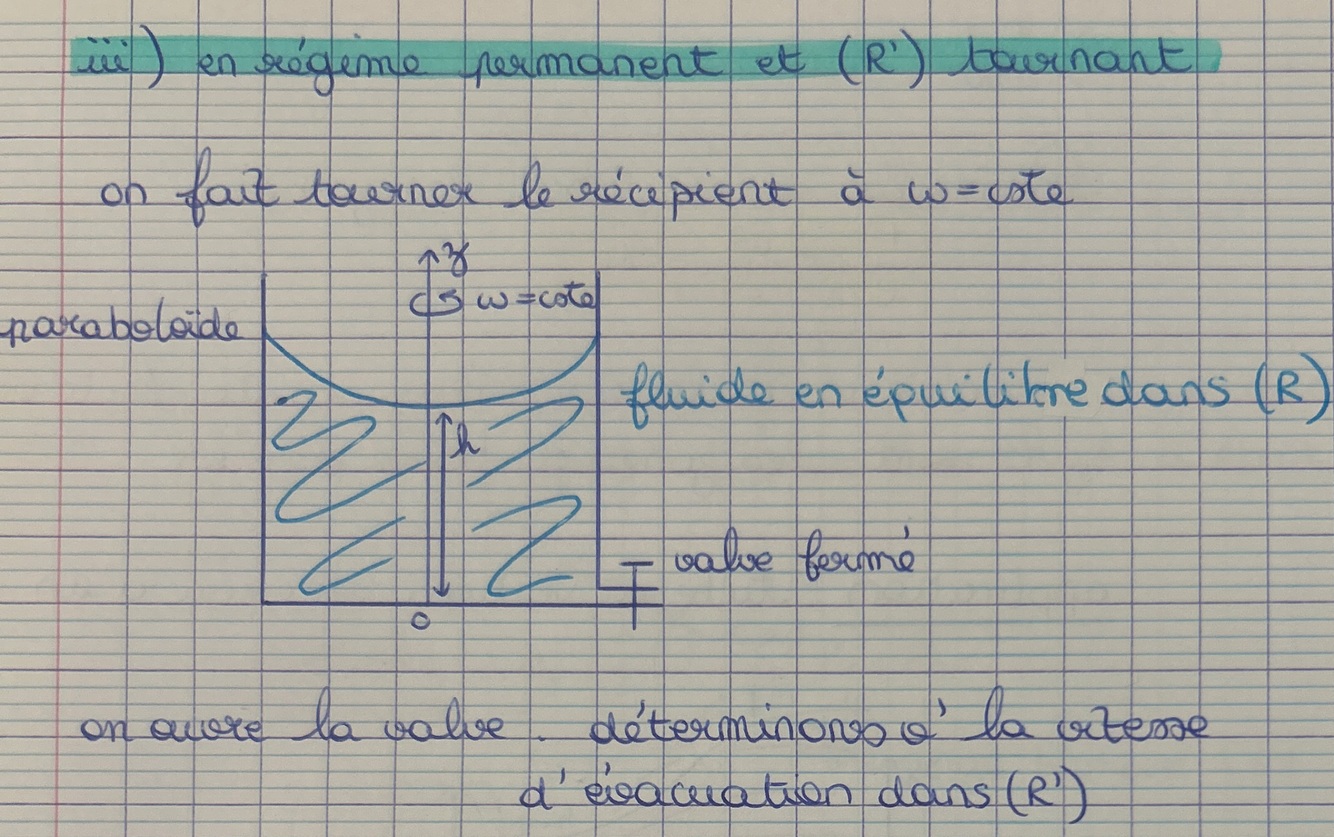 iii) en régime permanent et (R') tournant
on fait tourner le récipient à ω=cste
z
ω=cste
paraboloïde
fluide en équilibre dans (R)
h
valve fermé
o
on ouvre la valve. déterminons v' la vitesse
d'évacuation dans (R')